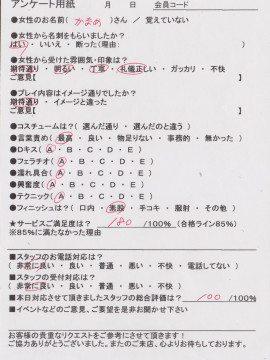 アンケート用紙　月　日　会員コード
●女性のお名前( かなめ )さん / 覚えていない
●女性から名刺をもらいましたか?
(はい・いいえ・断った(理由:　)
●女性から受けた雰囲気・印象は?
期待通り・明るい・丁寧・礼儀正しい・ガッカリ・不快
ご意見【　】
●プレイ内容はイメージ通りでしたか?
期待通り・イメージと違った
ご意見【　】
●コスチュームは?( 選んだ通り ・ 選んだのと違う )
●言葉責め( 最高・ 良い ・ 物足りない ・ 事務的 ・ 無かった )
●Dキス( A・B・C・D・E )
●フェラチオ( A・B・C・D・E )
●濡れ具合( A・B・C・D・E )
●興奮度( A・B・C・D・E )
●テクニック( A・B・C・D・E )
●フィニッシュは?( 口内 ・素股・ 手コキ ・ 服射 ・ その他 )
★サービスご満足度は? 180 /100% (合格ライン85%)
※85%に満たなかった理由
■スタッフのお電話対応は?
( 非常に良い ・ 良い ・ 普通 ・ 悪い ・ 不快 ・ 電話してない )
■スタッフの受付対応は?
( 非常に良い ・ 良い ・ 普通 ・ 悪い ・ 不快 )
■本日対応させて頂きましたスタッフの総合評価は? 100 /100%
■イベントなどのご意見、ご要望を是非お聞かせ下さい
お客様の貴重なリクエストをご参考にさせて頂きます!
ご協力ありがとうございました。またのご来店、心よりお待ちしております。